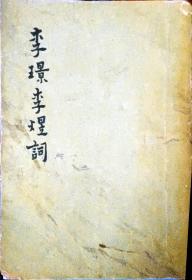 李璟李煜詞